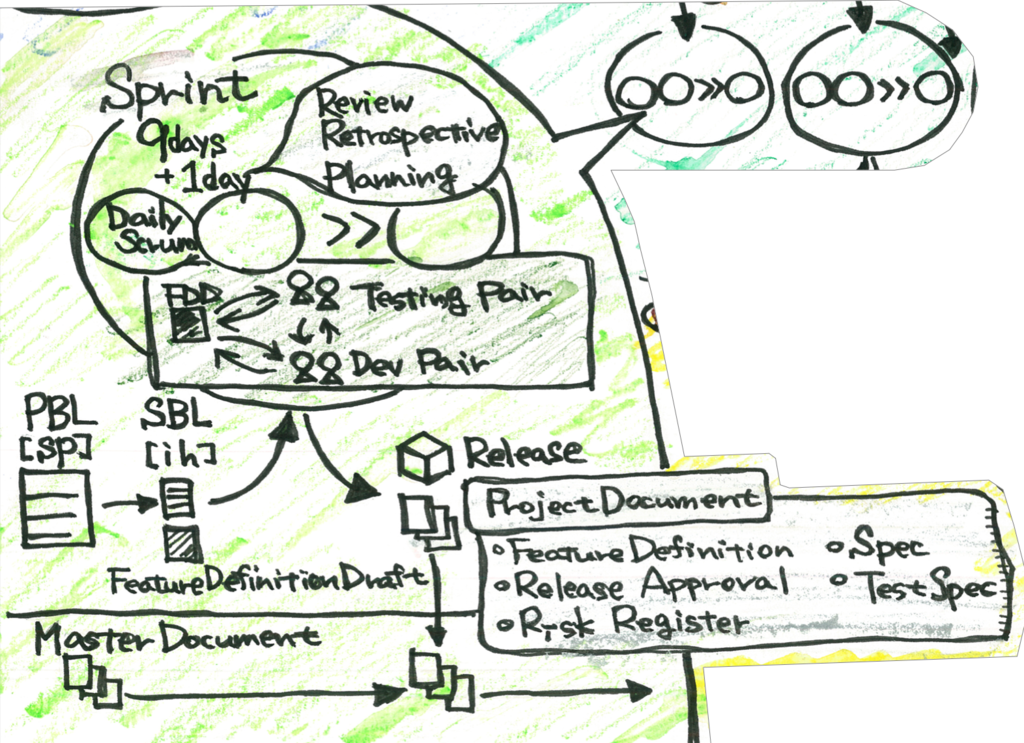 Sprint
9days
+1day
Review
Retrospective
Planning
Daily
Scrum
>>
FDD
Testing Pair
Dev Pair
PBL
[sp]
SBL
[ih]
Release
FeatureDefinitionDraft
Project Document
Feature Definition
Release Approval
Risk Register
Spec
Test Spec
Master Document
>>
>>